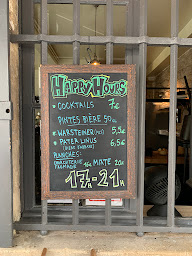 Happy Hours
• COCKTAILS 7€
PINTES BIÈRE 50CL
• WARSTEINER 5,5€
• PATER LINUS 6,5€
PLANCHES:
FROMAGE 16€ MIXTE 20€
17H-21H